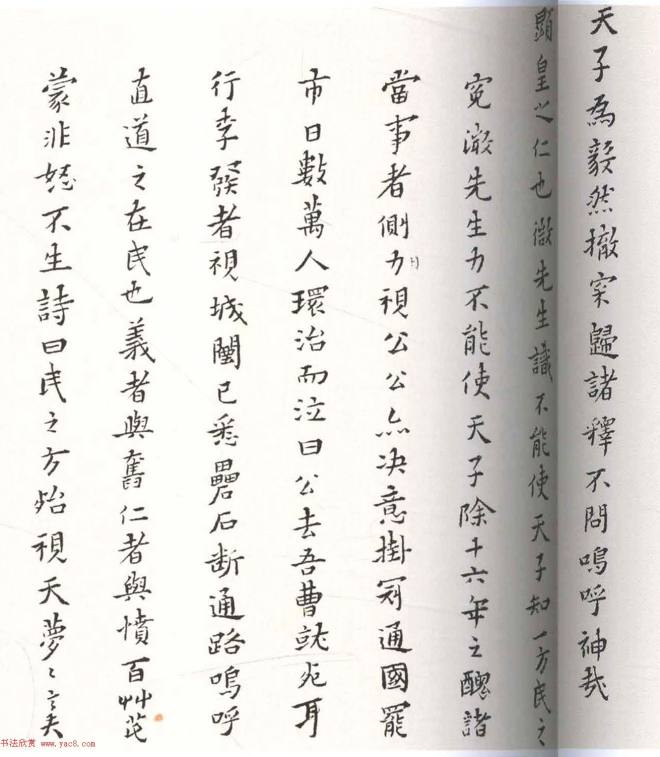 天子為毅然撤寀歸諸釋不問嗚呼神哉
顯皇之仁也微先生識不能使天子知一方民之
寃微先生力不能使天子除十六年之醜諸
當事者側力目視公公亦决意掛冠通國罷
市日數萬人環治而泣曰公去吾曹就死耳
行李發者視城闉已悉壘石断通路嗚呼
直道之在民也義者與奮仁者與憤百艸芘
蒙非 不生詩曰民之方殆視天夢〻言夫
书法欣赏 www.yac8.com